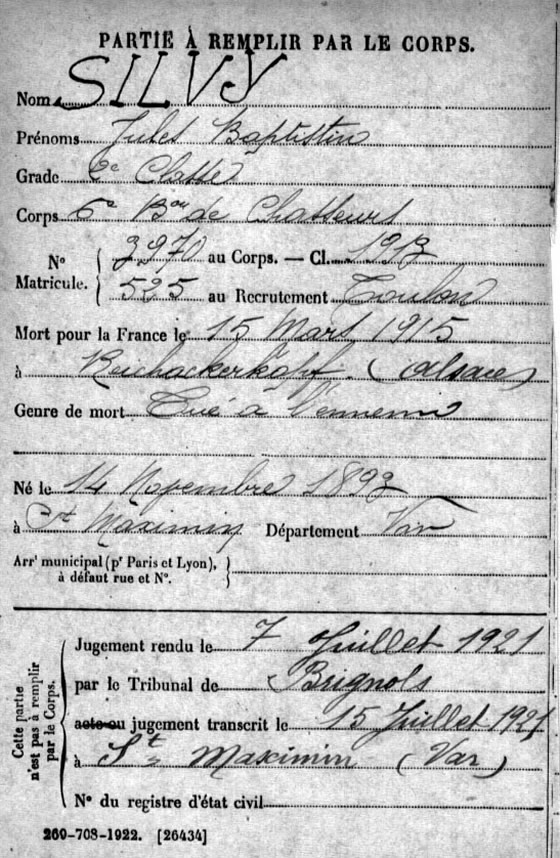 PARTIE À REMPLIR PAR LE CORPS.
Nom SILVY
Prénoms Jules Baptistin
Grade 2e Classe
Corps 6e Bon de Chasseurs
N° Matricule. 3970 au Corps. — Cl. 1913
525 au Recrutement Toulon
Mort pour la France le 15 Mars 1915
à Reichackerkopf (Alsace)
Genre de mort Tué à l'ennemi
Né le 14 Novembre 1893
à St Maximin Département Var
Arrt municipal (pr Paris et Lyon),
à défaut rue et N°.
Cette partie n'est pas à remplir par le Corps.
Jugement rendu le 7 Juillet 1921
par le Tribunal de Brignols
acte ou jugement transcrit le 15 Juillet 1921
à St Maximin (Var)
N° du registre d'état civil
269-708-1922. [26434]